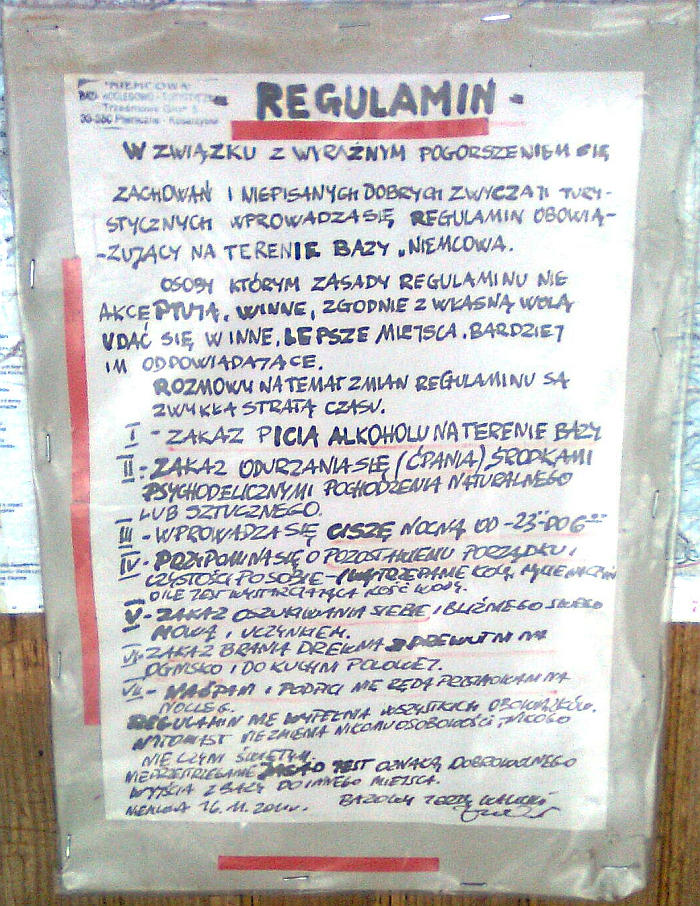 "NIEMCOWA"
- REGULAMIN -
W ZWIĄZKU Z WYRAŹNYM POGORSZENIEM SIĘ
ZACHOWAŃ I NIEPISANYCH DOBRYCH ZWYCZAJI TURY-
STYCZNYCH WPROWADZA SIĘ REGULAMIN OBOWIĄ-
-ZUJĄCY NA TERENIE BAZY „NIEMCOWA.
OSOBY KTÓRYM ZASADY REGULAMINU NIE
AKCEPTUJĄ, WINNE, ZGODNIE Z WŁASNĄ WOLĄ
UDAĆ SIĘ W INNE, LEPSZE MIEJSCA, BARDZIEJ
IM ODPOWIADAJĄCE.
ROZMOWY NA TEMAT ZMIAN REGULAMINU SĄ
ZWYKŁĄ STRATĄ CZASU.
I - ZAKAZ PICIA ALKOHOLU NA TERENIE BAZY
II - ZAKAZ ODURZANIA SIĘ (ĆPANIA) ŚRODKAMI
PSYCHODELICZNYMI POCHODZENIA NATURALNEGO
LUB SZTUCZNEGO.
III - WPROWADZA SIĘ CISZĘ NOCNĄ OD -23°° DO 6°°
IV - PRZYPOMINA SIĘ O POZOSTAWIENIU PORZĄDKU I
CZYSTOŚCI PO SOBIE - (WYTRZEPANIE KOCY, MYCIE NACZYŃ
O ILE JEST WYSTARCZAJĄCA ILOŚĆ WODY.
V - ZAKAZ OSZUKIWANIA SIEBIE I BLIŹNIEGO SWEGO
MOWĄ I UCZYNKIEM.
VI - ZAKAZ BRANIA DREWNA Z DREWUTNI NA
OGNISKO I DO KUCHNI POLOWEJ.
VII - NAĆPANI I PODPICI NIE BĘDĄ PRZYJMOWANI NA
NOCLEG.
REGULAMIN NIE WYPEŁNIA WSZYSTKICH OBOWIĄZKÓW,
NATOMIAST NIE ZMIENIA NIKOMU OSOBOWOŚCI, NIKOGO
NIE CZYNI ŚWIĘTYM.
NIEPRZESTRZEGANIE ZASAD JEST OZNAKĄ DOBROWOLNEGO
WYJŚCIA Z BAZY DO INNEGO MIEJSCA.
NIEMCOWA 16.11. BAZOWY JERZY